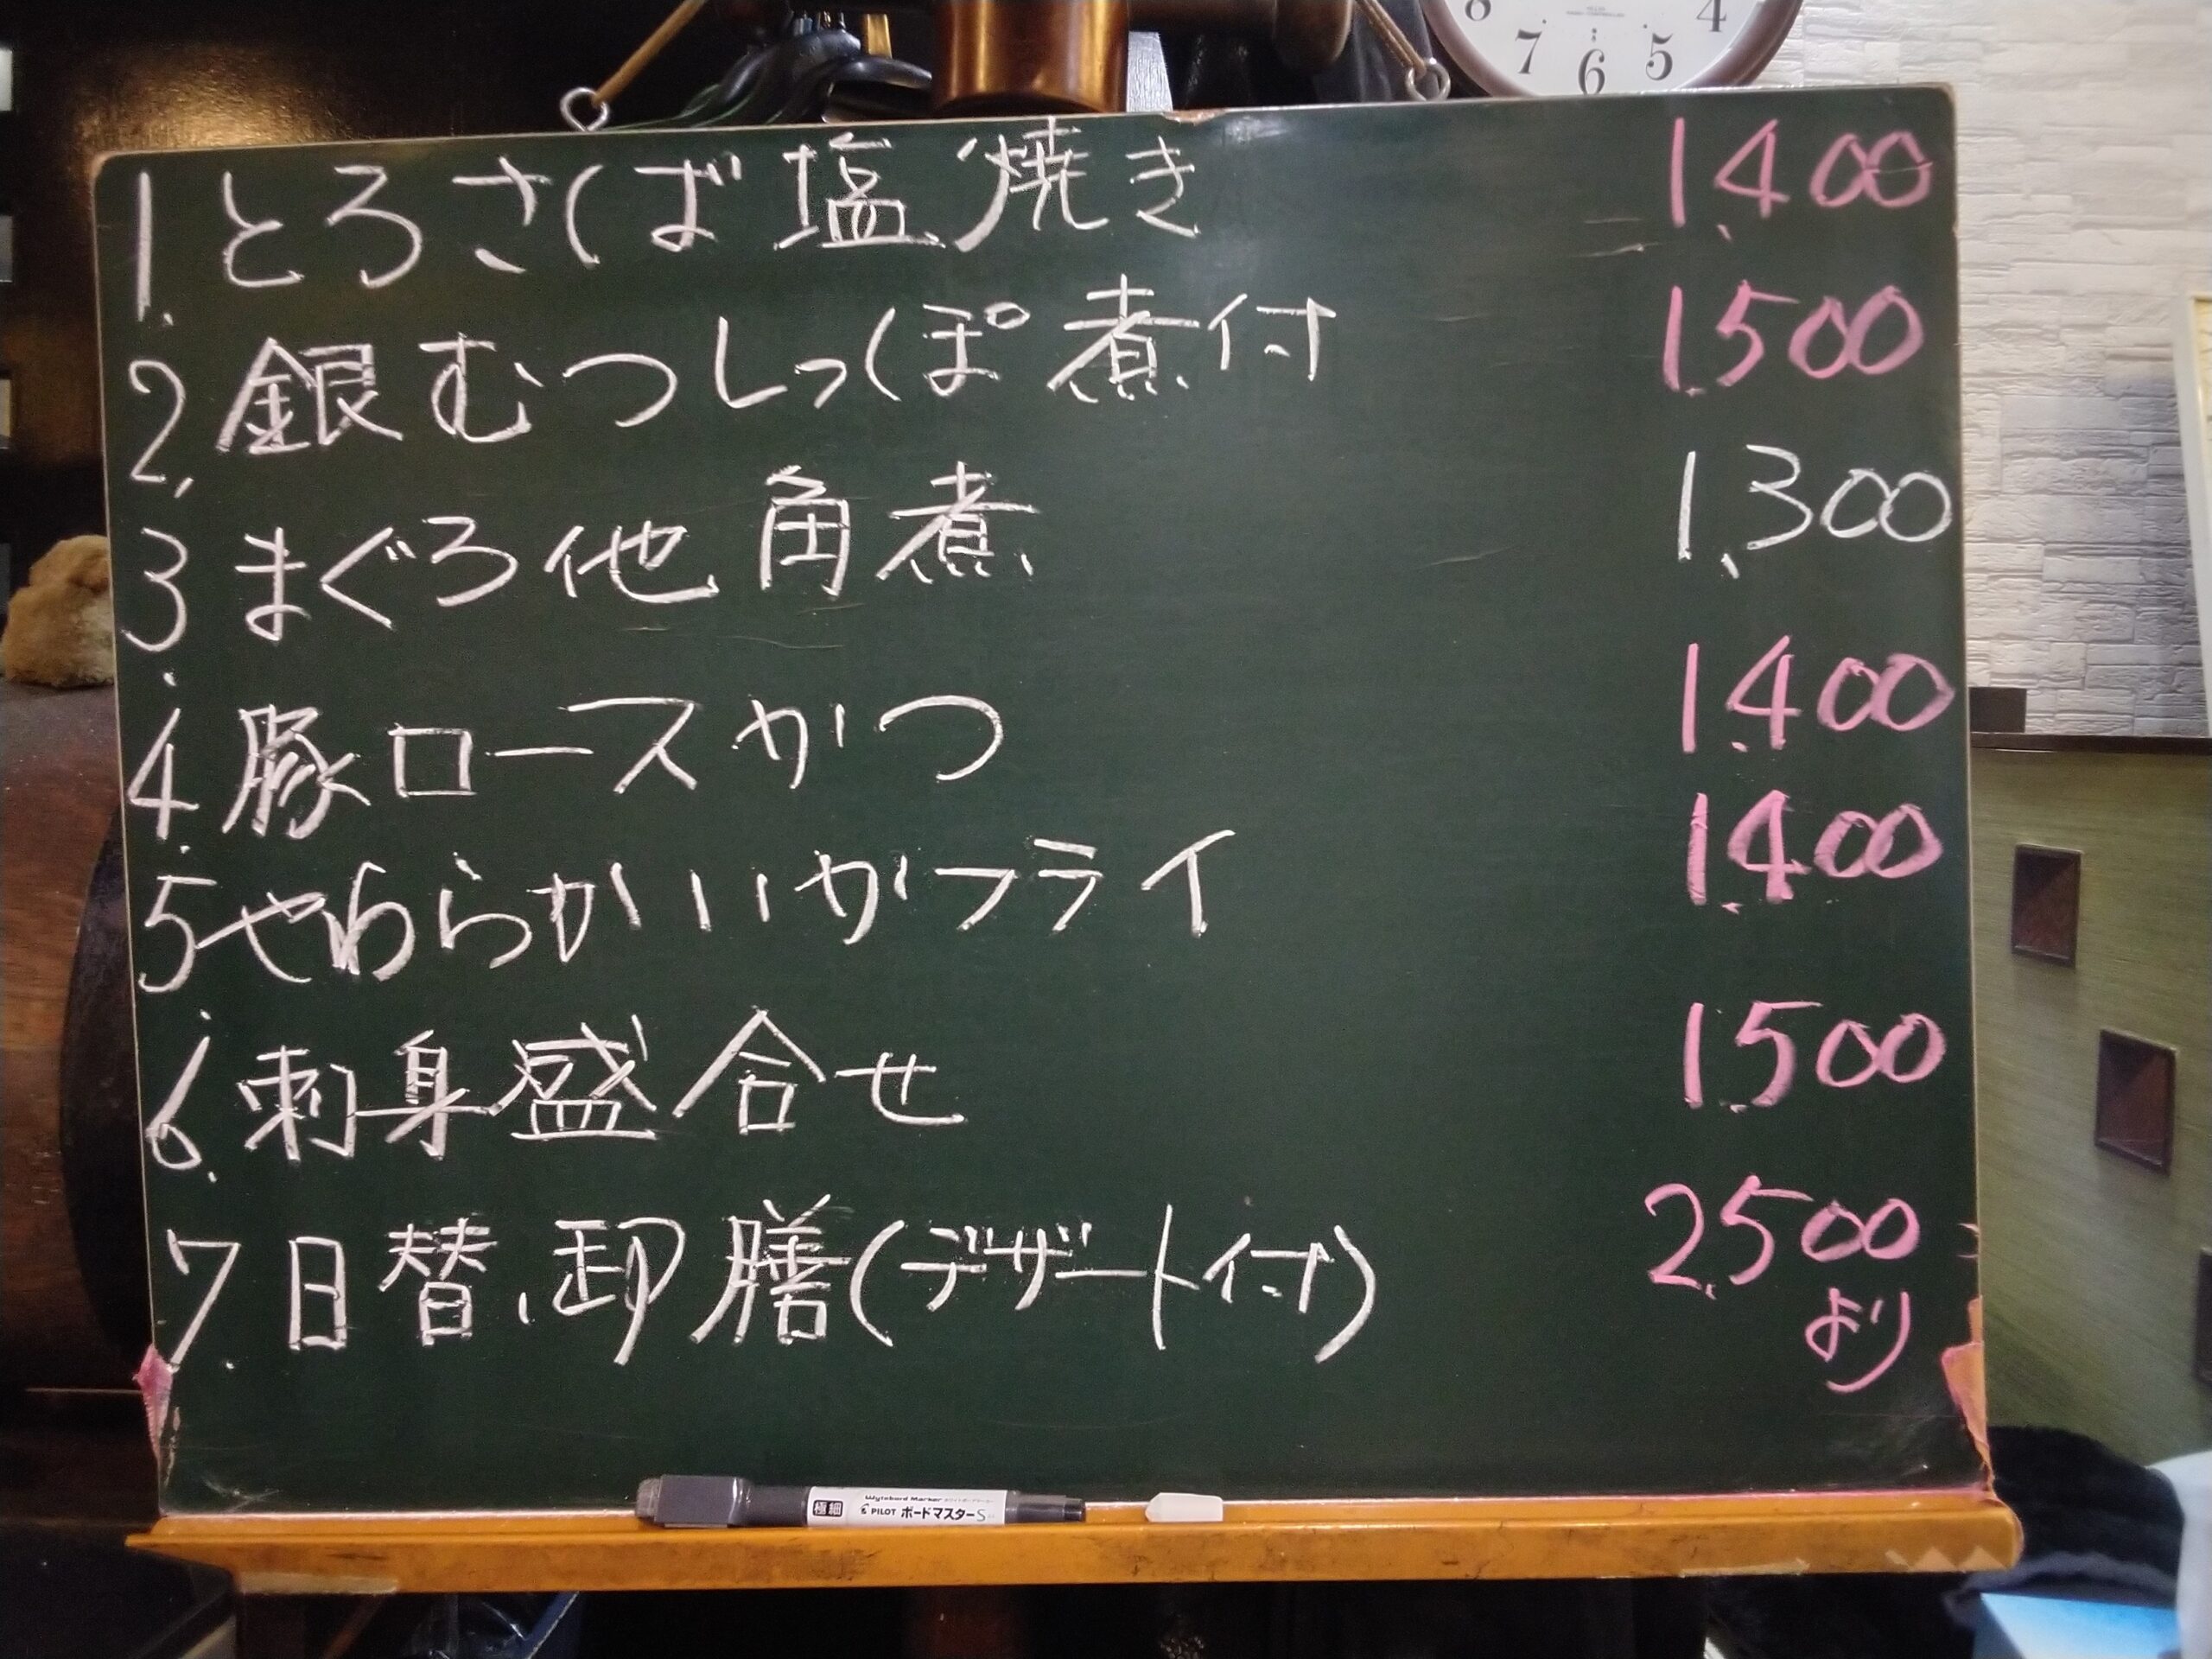 8 7 6 5 4
1. とろさば塩焼き 1,400
2. 銀むつしっぽ煮付 1,500
3. まぐろ他角煮 1,300
4. 豚ロースかつ 1,400
5. やわらかいかフライ 1,400
6. 刺身盛合せ 1,500
7. 日替、卸膳(デザート付) 2,500
より
Wyteboard Marker
極細 PILOT ボードマスターS